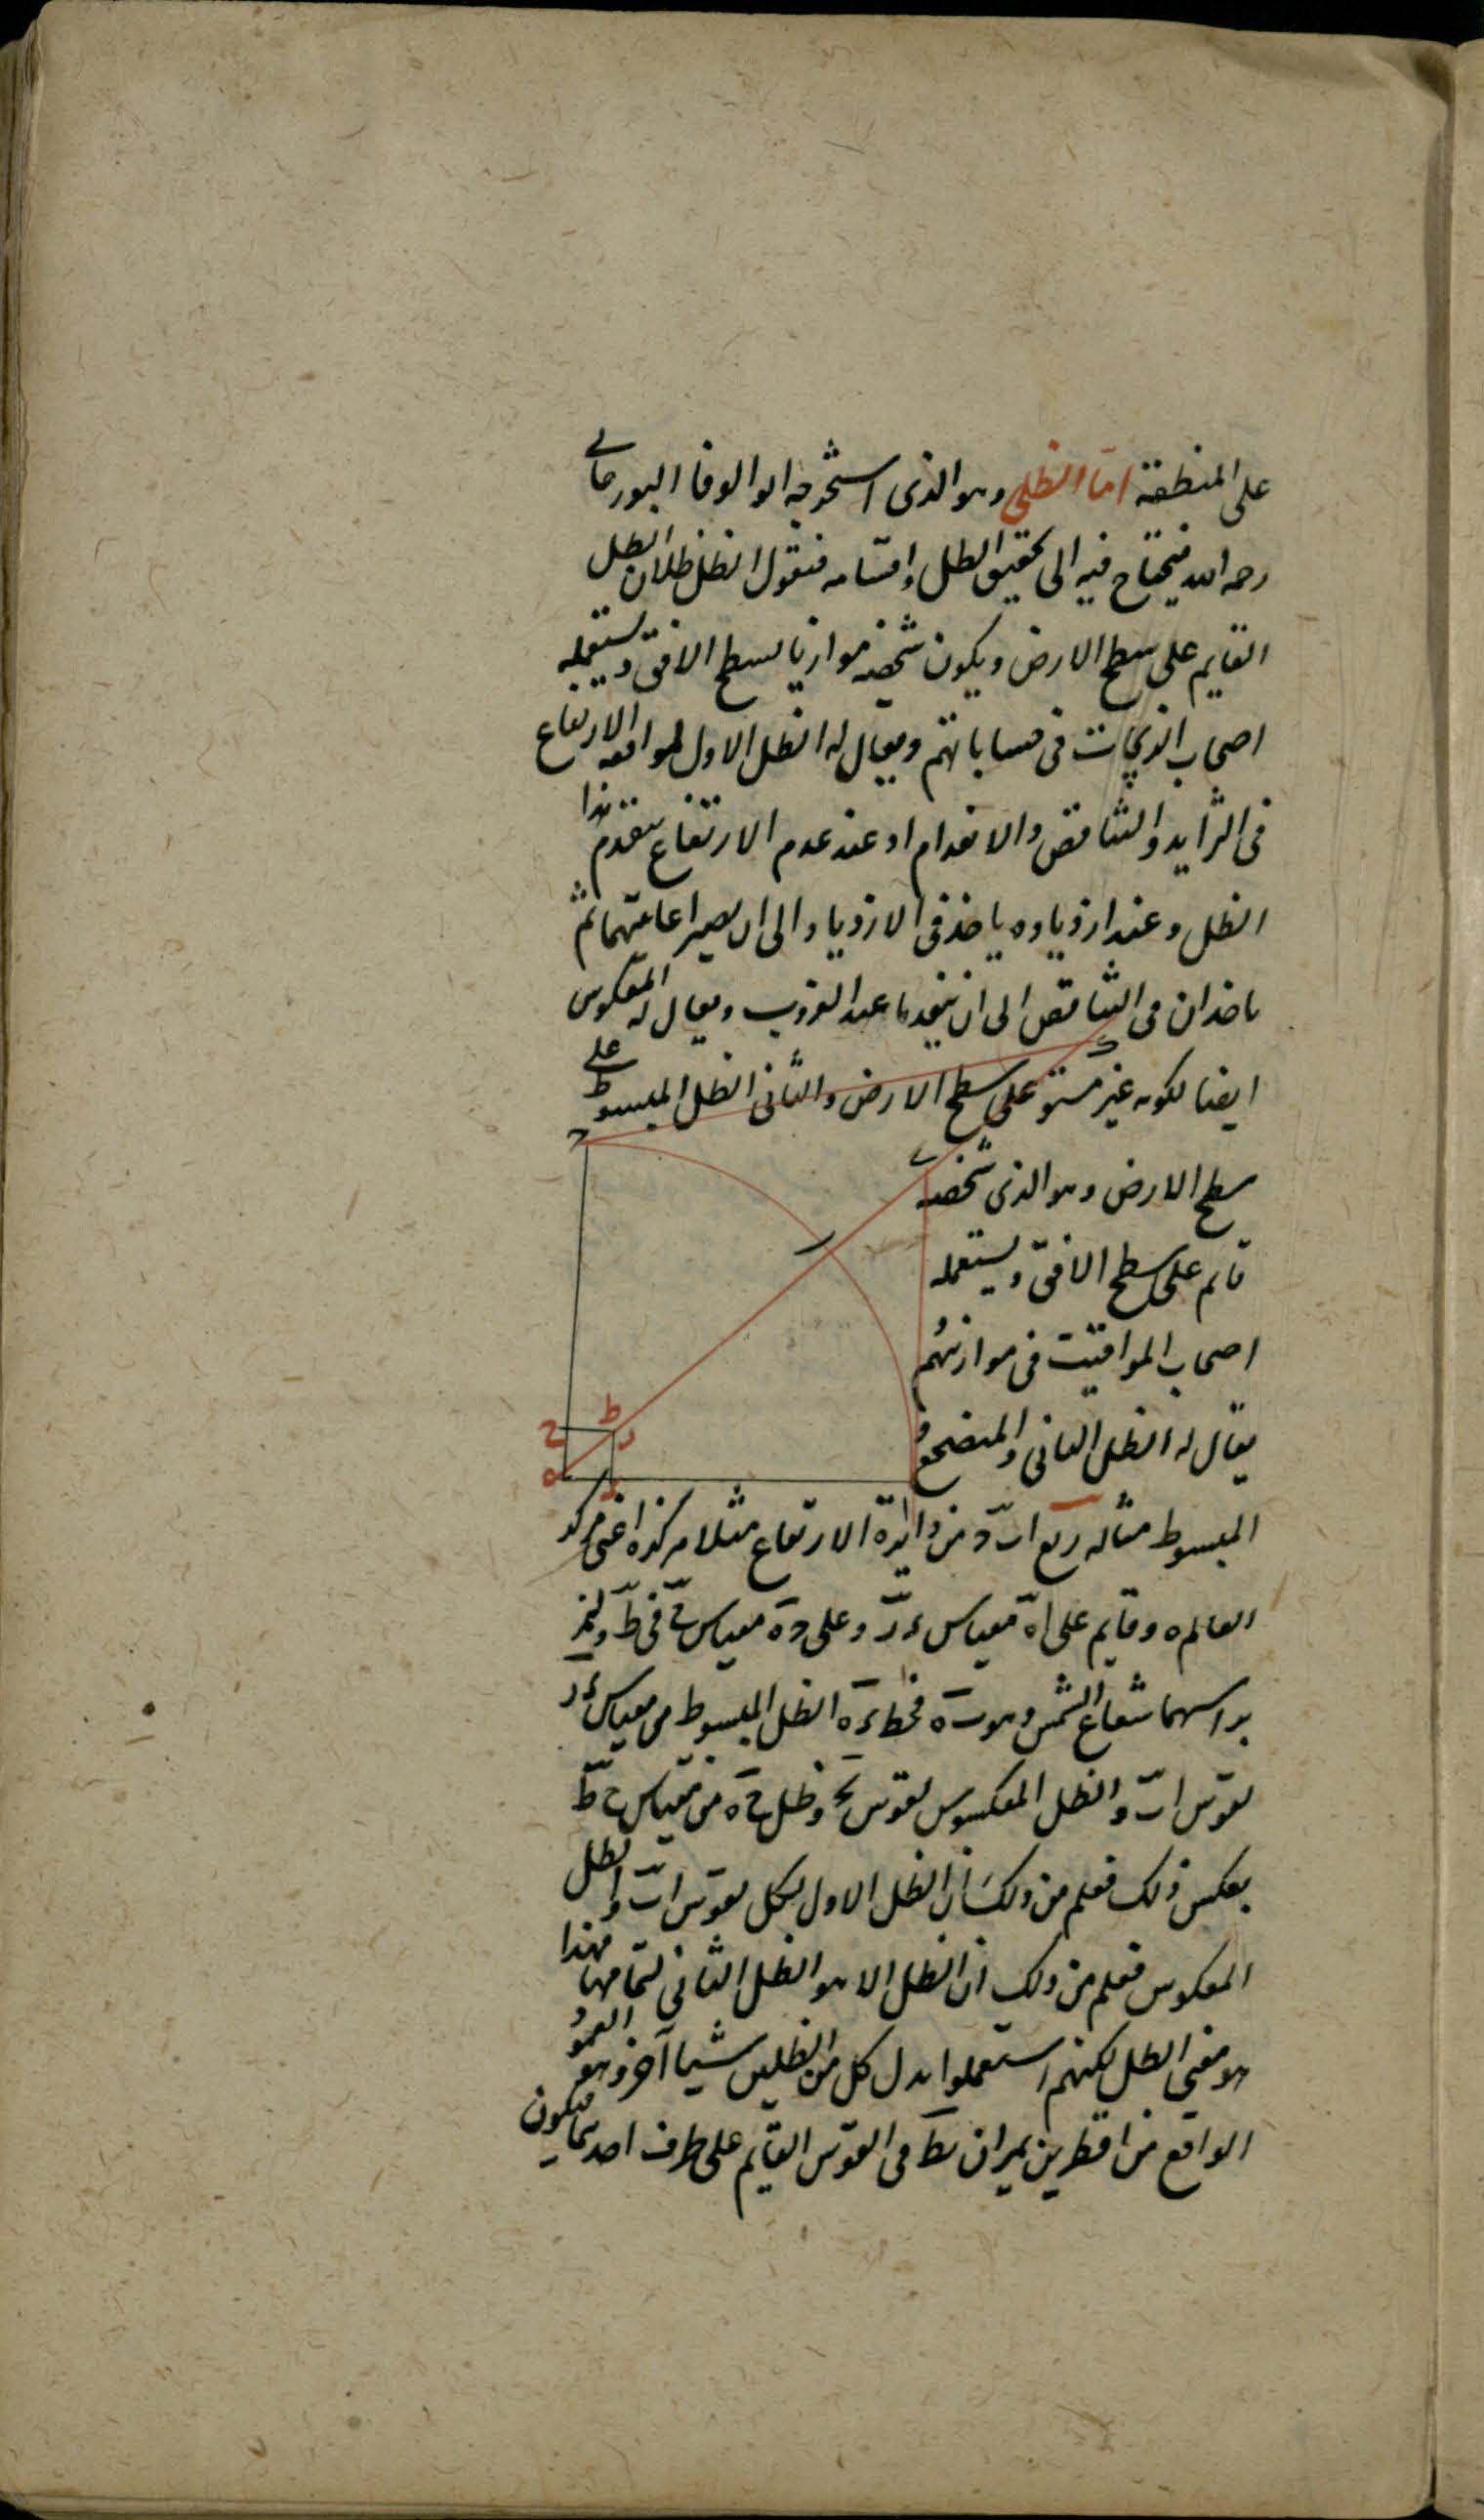 على المنطقة اما الظلى وهو الذى استخرجه ابو الوفا البوزجانى
رحمه الله فيحتاج فيه الى تحقيق الظل واقسامه فنقول الظل ظلان الظل
القايم على سطح الارض ويكون شخصه موازيا لسطح الافق ويستعمله
اصحاب الزيجات فى حساباتهم ويقال له الظل الاول لموافقه الارتفاع
فى التزايد والتناقص والانعدام اذ عند عدم الارتفاع ينعدم هذا
الظل وعند ازدياده ياخذ فى الازدياد الى ان يصيرا غايتهما ثم
ياخذان فى التناقص الى ان ينعدما عند الغروب ويقال له المعكوس
ايضا لكونه غير مستو على سطح الارض والثانى الظل المبسوط على
سطح الارض وهو الذى شخصه
قايم على سطح الافق ويستعمله
اصحاب المواقيت فى موازينهم و
يقال له الظل الثانى والمستوى و
المبسوط مثاله ربع ا ب د من دايرة الارتفاع مثلا مركزه اعنى مركز
العالم ه وقايم على ا ه مقياس ء ر وعلى د ه مقياس ح ط وليمر
براسهما شعاع الشمس وهو ب ه فخط ء ه الظل المبسوط من مقياس ء ر
لقوس ا ب والظل المعكوس لقوس وظل ح ه من مقياس ح ط
بعكس ذلك فعلم من ذلك ان الظل الاول لكل لقوس ا ب والظل
المعكوس فعلم من ذلك ان الظل الا هو الظل الثانى لتمامها فهذا
هو معنى الظل لكنهم استعملوا بدل كل من الظلين شيا آخر وهو العمود
الواقع من قطرين يمران بطرفى القوس القايم على طرف احدهما فيكون